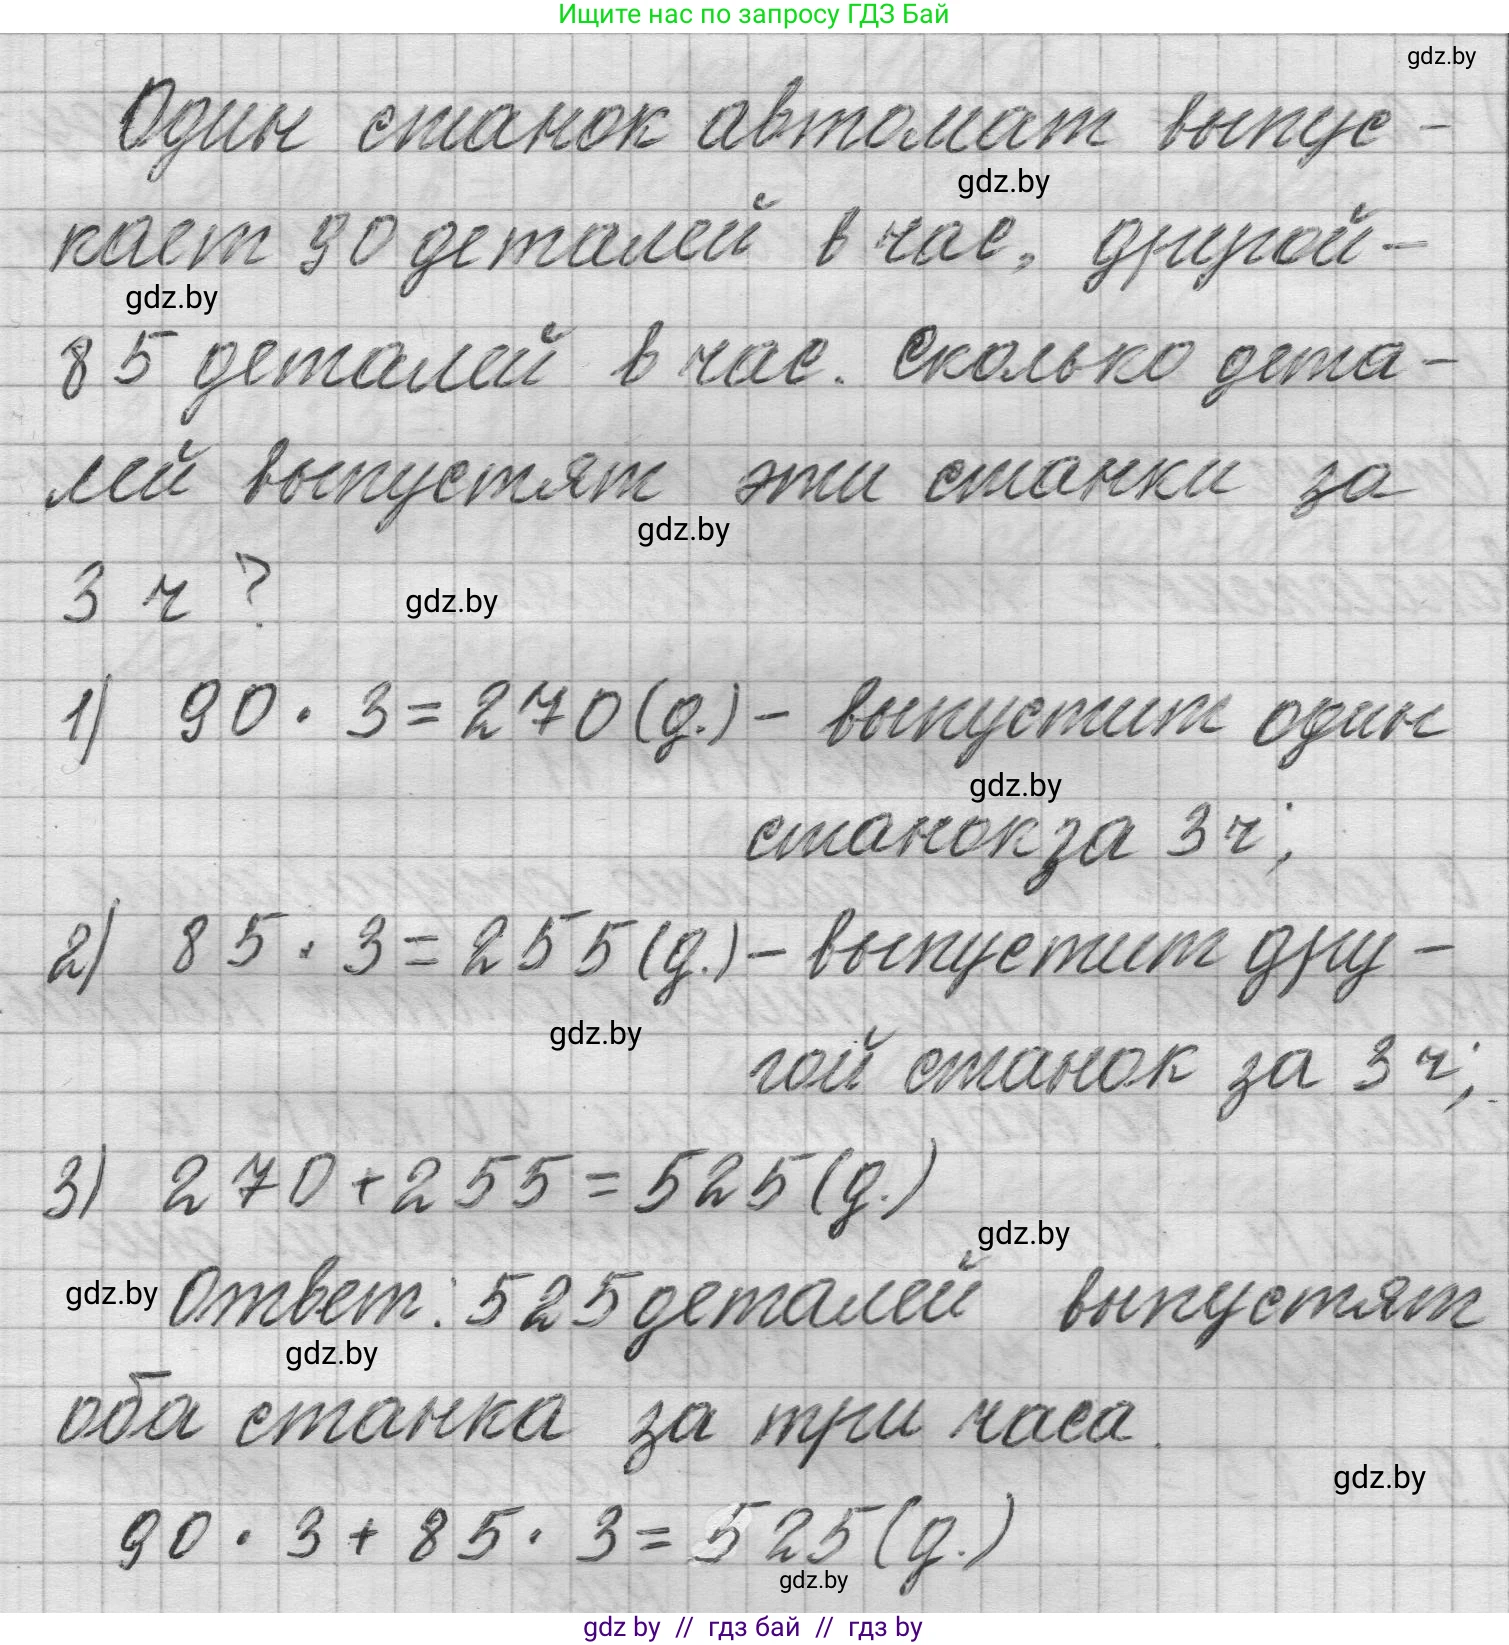 Ищите нас по запросу ГДЗ Бай
gdz.by
Один станок автомат выпус-
gdz.by
кает 90 деталей в час, другой-
gdz.by
85 деталей в час. Сколько дета-
лей выпустят эти станки за
gdz.by
3 ч ?
gdz.by
1) 90 · 3 = 270 (д.) - выпустит один
gdz.by
станок за 3 ч;
2) 85 · 3 = 255 (д.) - выпустит дру-
gdz.by
гой станок за 3 ч;
3) 270 + 255 = 525 (д.)
gdz.by
gdz.by Ответ: 525 деталей выпустят
gdz.by
оба станка за три часа.
gdz.by
90 · 3 + 85 · 3 = 525 (д.)
gdz.by
gdz by // гдз бай // гдз by